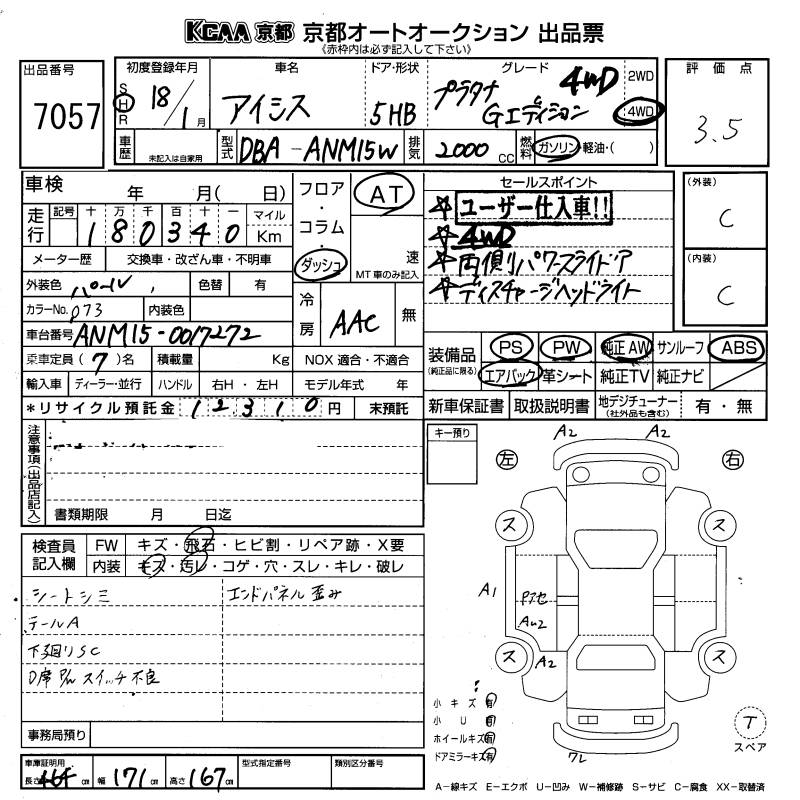 KCAA 京都 京都オートオークション 出品票
《赤枠内は必ず記入して下さい》
出品番号
7057
初度登録年月
S H R 18/1月
車名
アイシス
ドア・形状
5HB
グレード
プラタナ 4WD
Gエディション
2WD
4WD
評価点
3.5
車歴
未記入は自家用
型式
DBA-ANM15W
排気
2000 cc
燃料
ガソリン・軽油・( )
車検 年 月( 日)
走行
記号 十 万 千 百 十 一 マイル
1 8 0 3 4 0 Km
メーター歴 交換車・改ざん車・不明車
外装色 パール 色替 有
カラーNo. 073 内装色
車台番号 ANM15-0017272
乗車定員(7)名 積載量 Kg NOX適合・不適合
輸入車 ディーラー・並行 ハンドル 右H・左H モデル年式 年
*リサイクル預託金 12310円 未預託
フロア・コラム・ダッシュ
AT
速
MT車のみ記入
冷房
AAC
無
セールスポイント
☆ユーザー仕入車!!
☆4WD
☆両側パワースライドドア
☆ディスチャージヘッドライト
(外装)
C
(内装)
C
装備品
(純正品に限る)
PS PW 純正AW サンルーフ ABS
エアバック 革シート 純正TV 純正ナビ
新車保証書 取扱説明書 地デジチューナー 有・無
(社外品も含む)
注意事項(出品店記入)
書類期限 月 日迄
キー預り
左
右
A2 A2
ス ス
A1
Pアセ
AU2
ス A2 ス
ワレ
T
スペア
検査員記入欄
FW キズ・飛石・ヒビ割・リペア跡・X要
内装 キズ・汚レ・コゲ・穴・スレ・キレ・破レ
シートシミ
テールA
下廻りSC
D席P/W スイッチ不良
エンドパネル歪み
事務局預り
小キズ 有
小U 有
ホイールキズ 有
ドアミラーキズ 有
車庫証明用
長さ 464 cm 幅 171 cm 高さ 167 cm
型式指定番号
類別区分番号
A-線キズ E-エクボ U-凹み W-補修跡 S-サビ C-腐食 XX-取替済